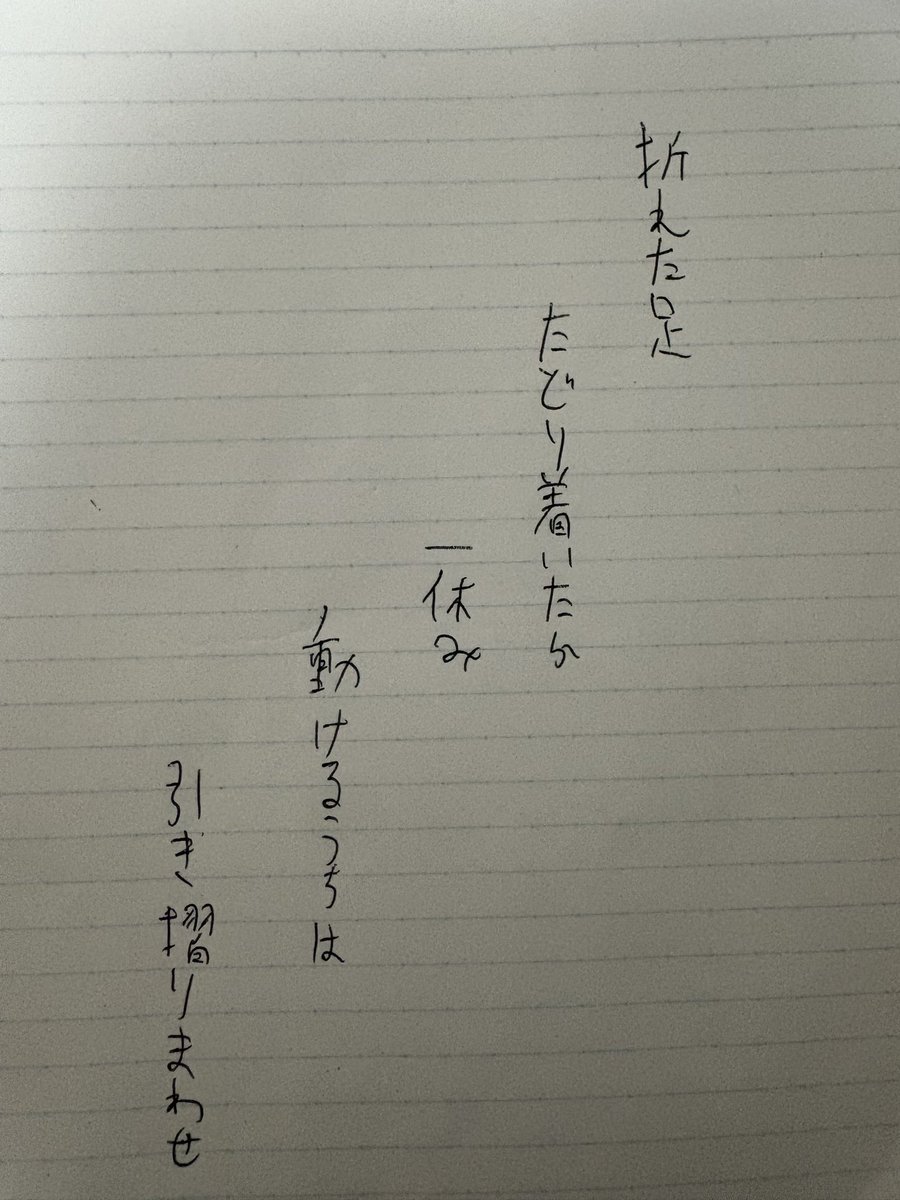 折れた足
たどり着いたら
一休み
動けるうちは
引き摺りまわせ